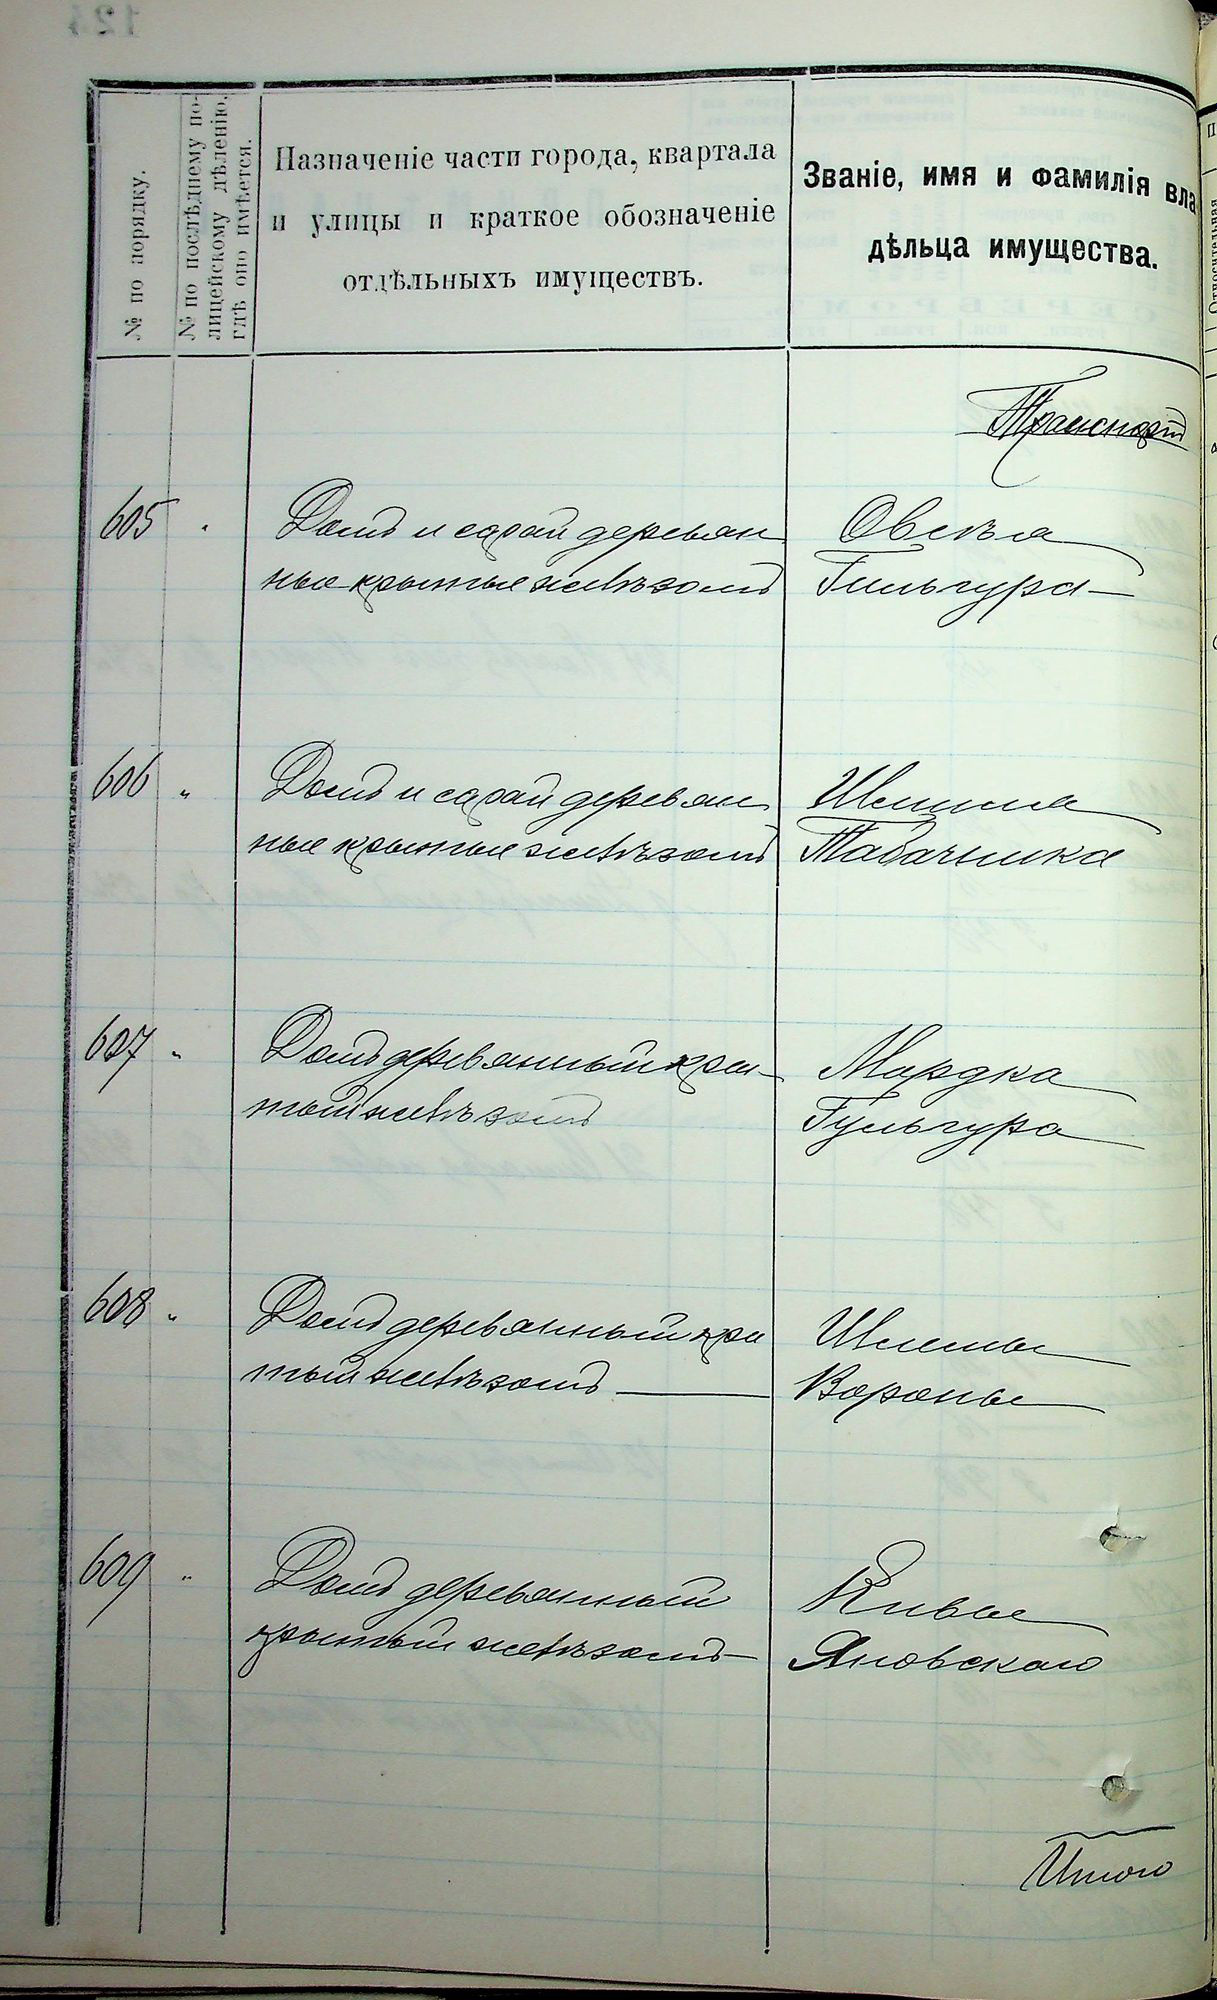 № по порядку.
№ по послѣднему по-
лицейскому дѣленію,
гдѣ оно имѣется.
Назначеніе части города, квартала
и улицы и краткое обозначеніе
отдѣльныхъ имуществъ.
Званіе, имя и фамилія вла
дѣльца имущества.
Транспортъ
605 " Домъ и сарай деревян Овсѣя
ные крытые желѣзомъ Гильгура
606 " Домъ и сарай деревян
ные крытые желѣзомъ Табачника
607 " Домъ деревянный кры- Мордка
тый желѣзомъ Гульгура
608 " Домъ деревянный кры Шлемы
тый желѣзомъ Вороны
609 " Домъ деревянный Кивы
крытый желѣзомъ Яновскаго
Итого